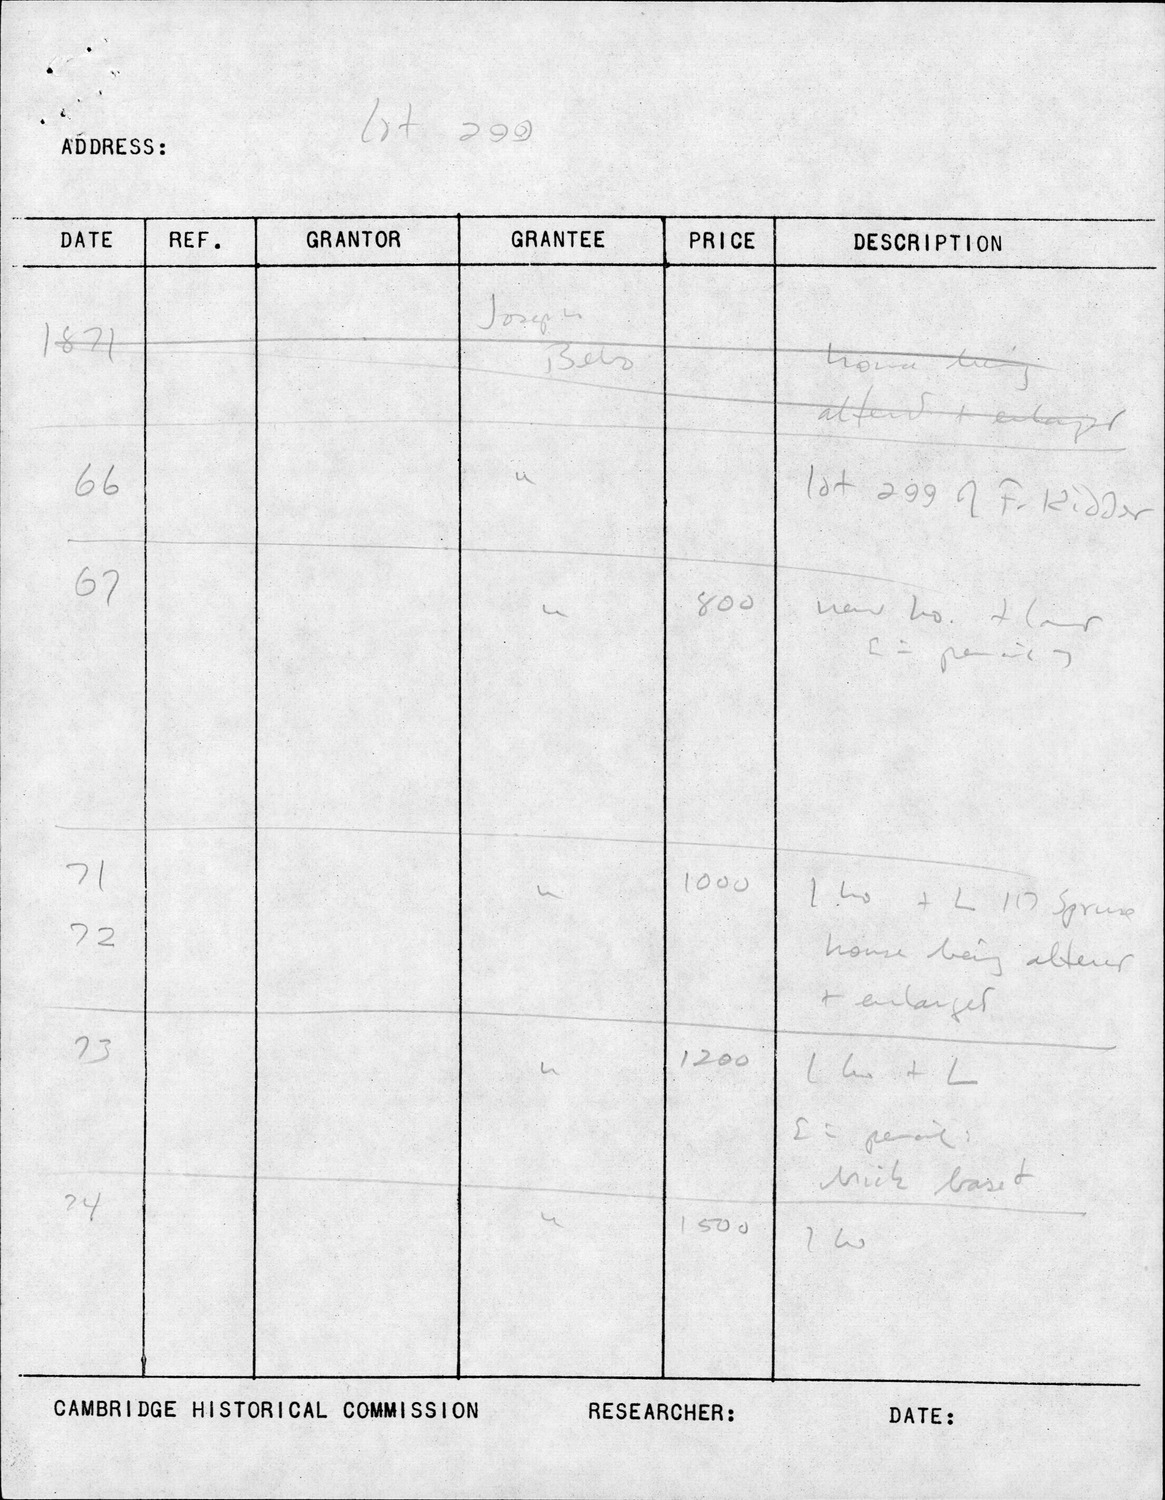 lot 299
ADDRESS:
DATE REF. GRANTOR GRANTEE PRICE DESCRIPTION
Joseph
1871 house being
altered + enlarged
66 " lot 299 of F. Kidder
67 " 800 new ho. + land
71 " 1000 1 ho + L 117 Spruce
72 house being altered
+ enlarged
73 " 1200 1 ho + L
brick base
74 " 1500 1 ho
CAMBRIDGE HISTORICAL COMMISSION RESEARCHER: DATE: